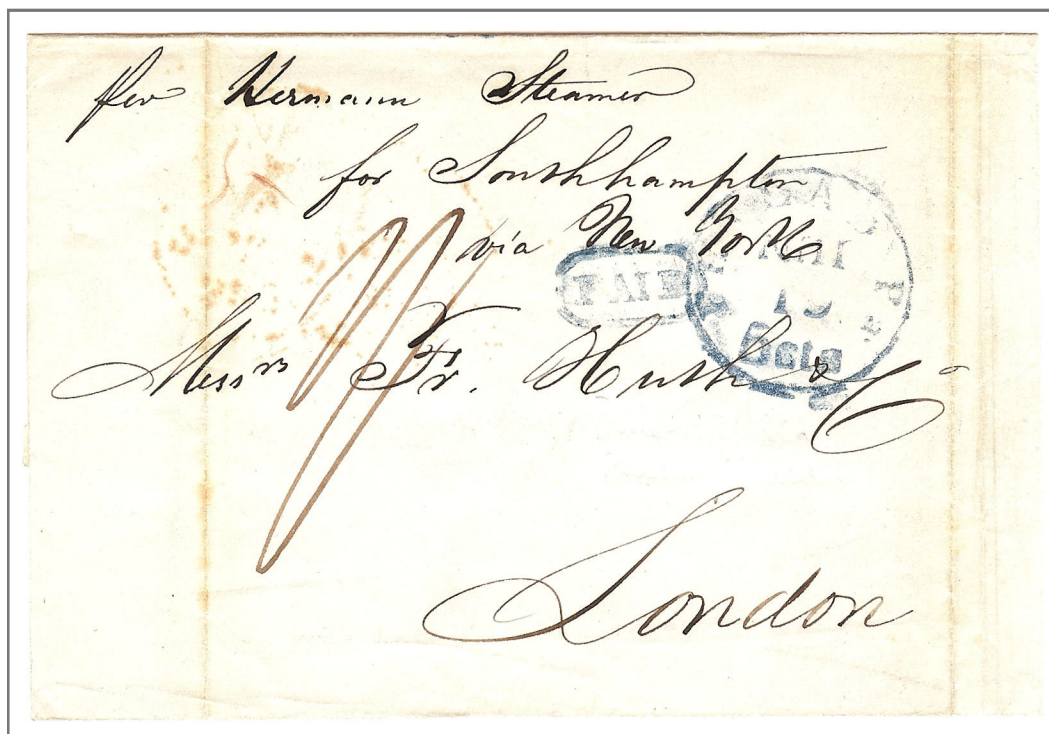 per Hermann Steamer
for Southhampton
via New York
PAID
Messrs Fr. Huth & Co
London